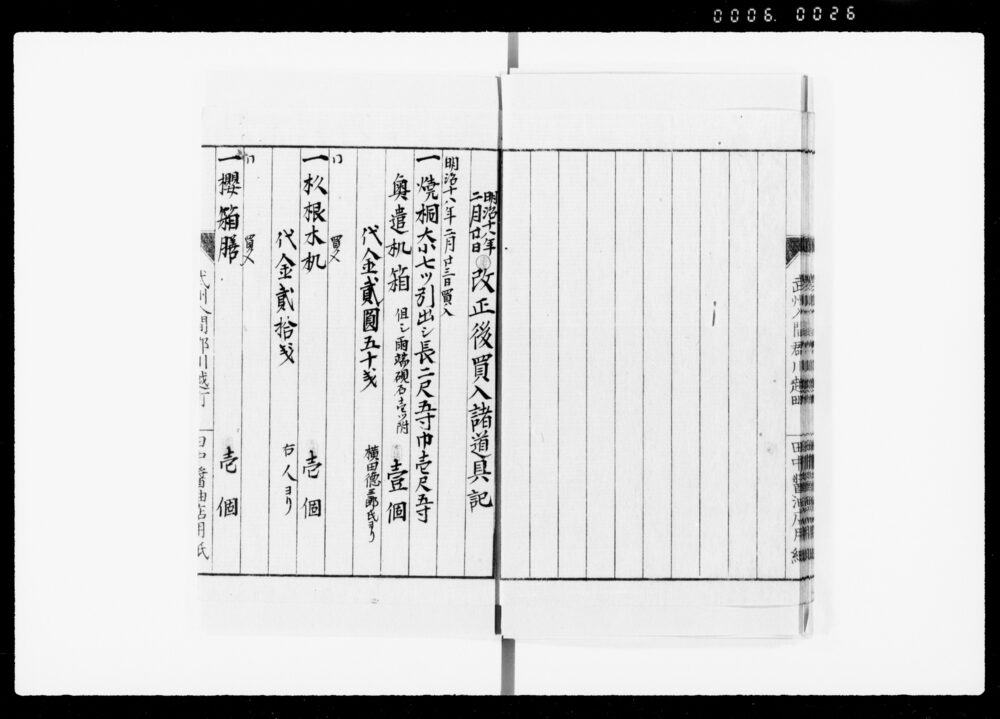 0006. 0026
武州入間郡川越町
田中醤油店用紙
明治十八年
二月廿日
改正後買入諸道具記
明治十八年二月廿三日買入
一 焼桐大小七ツ引出シ長二尺五寸巾壱尺五寸
奥遣机箱 但シ雨端硯石壱ツ附 壹個
代金貳圓五十戋 横田徳三郎氏ヨリ
〃 買入
一 杦根木机 壱個
代金貳拾戋 右人ヨリ
〃 買入
一 櫻箱膳 壱個
武州入間郡川越町
田中醤油店用紙